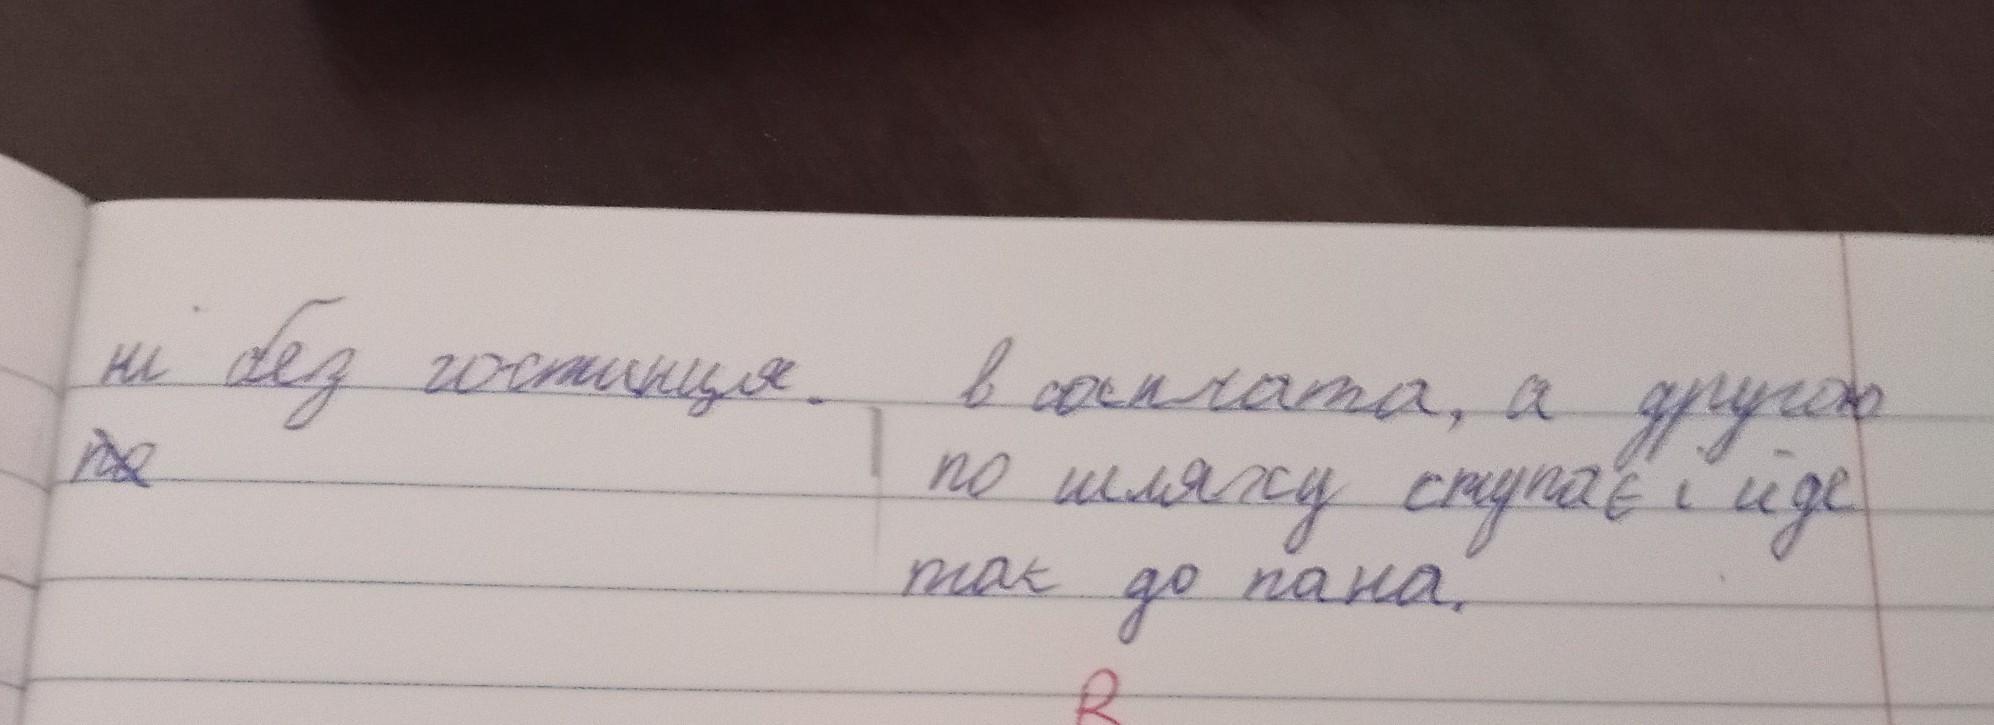 ні без гостинця.
в санчата, а другою
по шляху ступає і йде
так до пана.
В